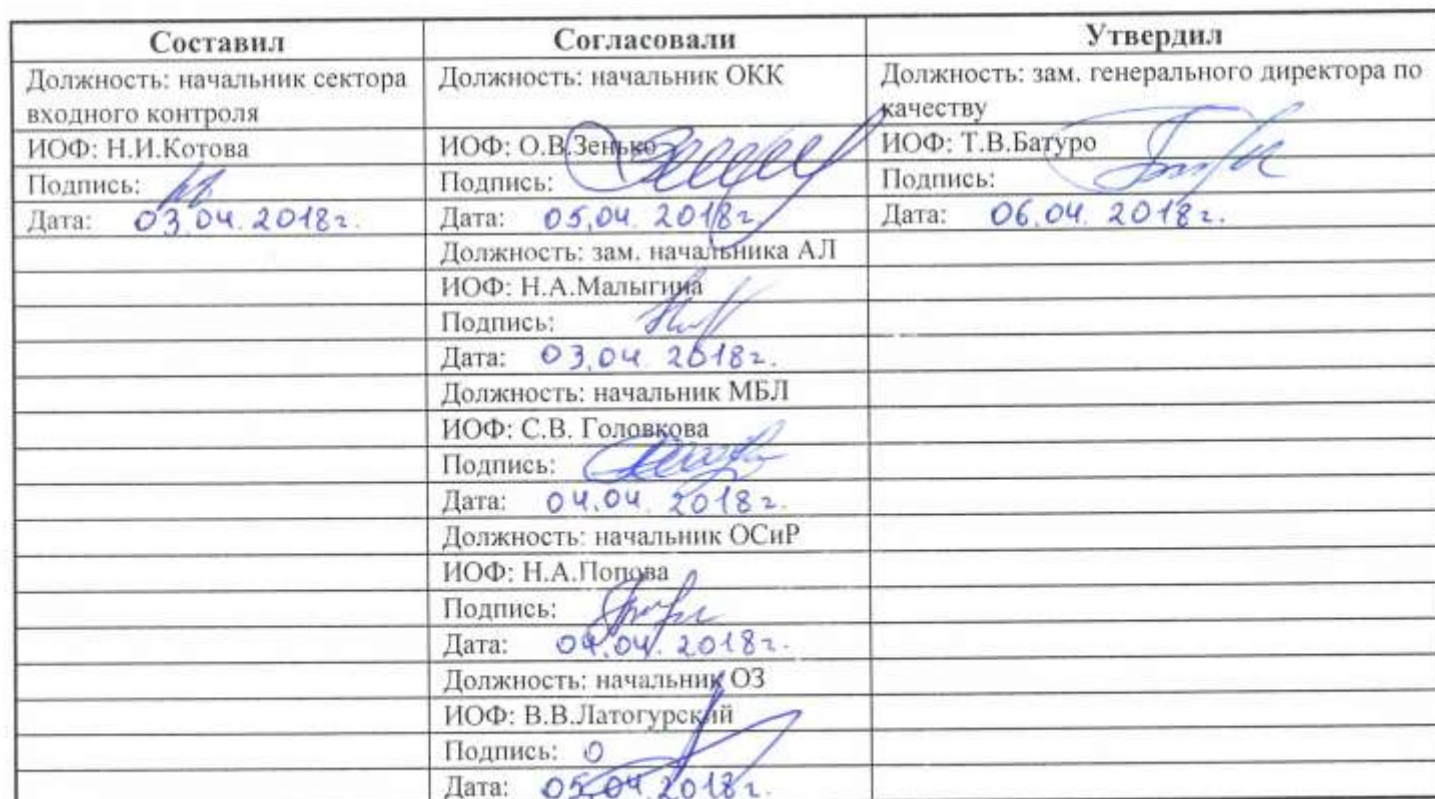 Составил Согласовали Утвердил
Должность: начальник сектора Должность: начальник ОКК Должность: зам. генерального директора по
входного контроля качеству
ИОФ: Н.И.Котова ИОФ: О.В.Зенько ИОФ: Т.В.Батуро
Подпись: Подпись: Подпись:
Дата: 03.04.2018г. Дата: 05.04.2018г Дата: 06.04.2018г.
Должность: зам. начальника АЛ
ИОФ: Н.А.Малыгина
Подпись:
Дата: 03.04.2018г.
Должность: начальник МБЛ
ИОФ: С.В. Головкова
Подпись:
Дата: 04.04.2018г.
Должность: начальник ОСиР
ИОФ: Н.А.Попова
Подпись:
Дата: 04.04.2018г.
Должность: начальник ОЗ
ИОФ: В.В.Латогурский
Подпись:
Дата: 05.04.2018г.